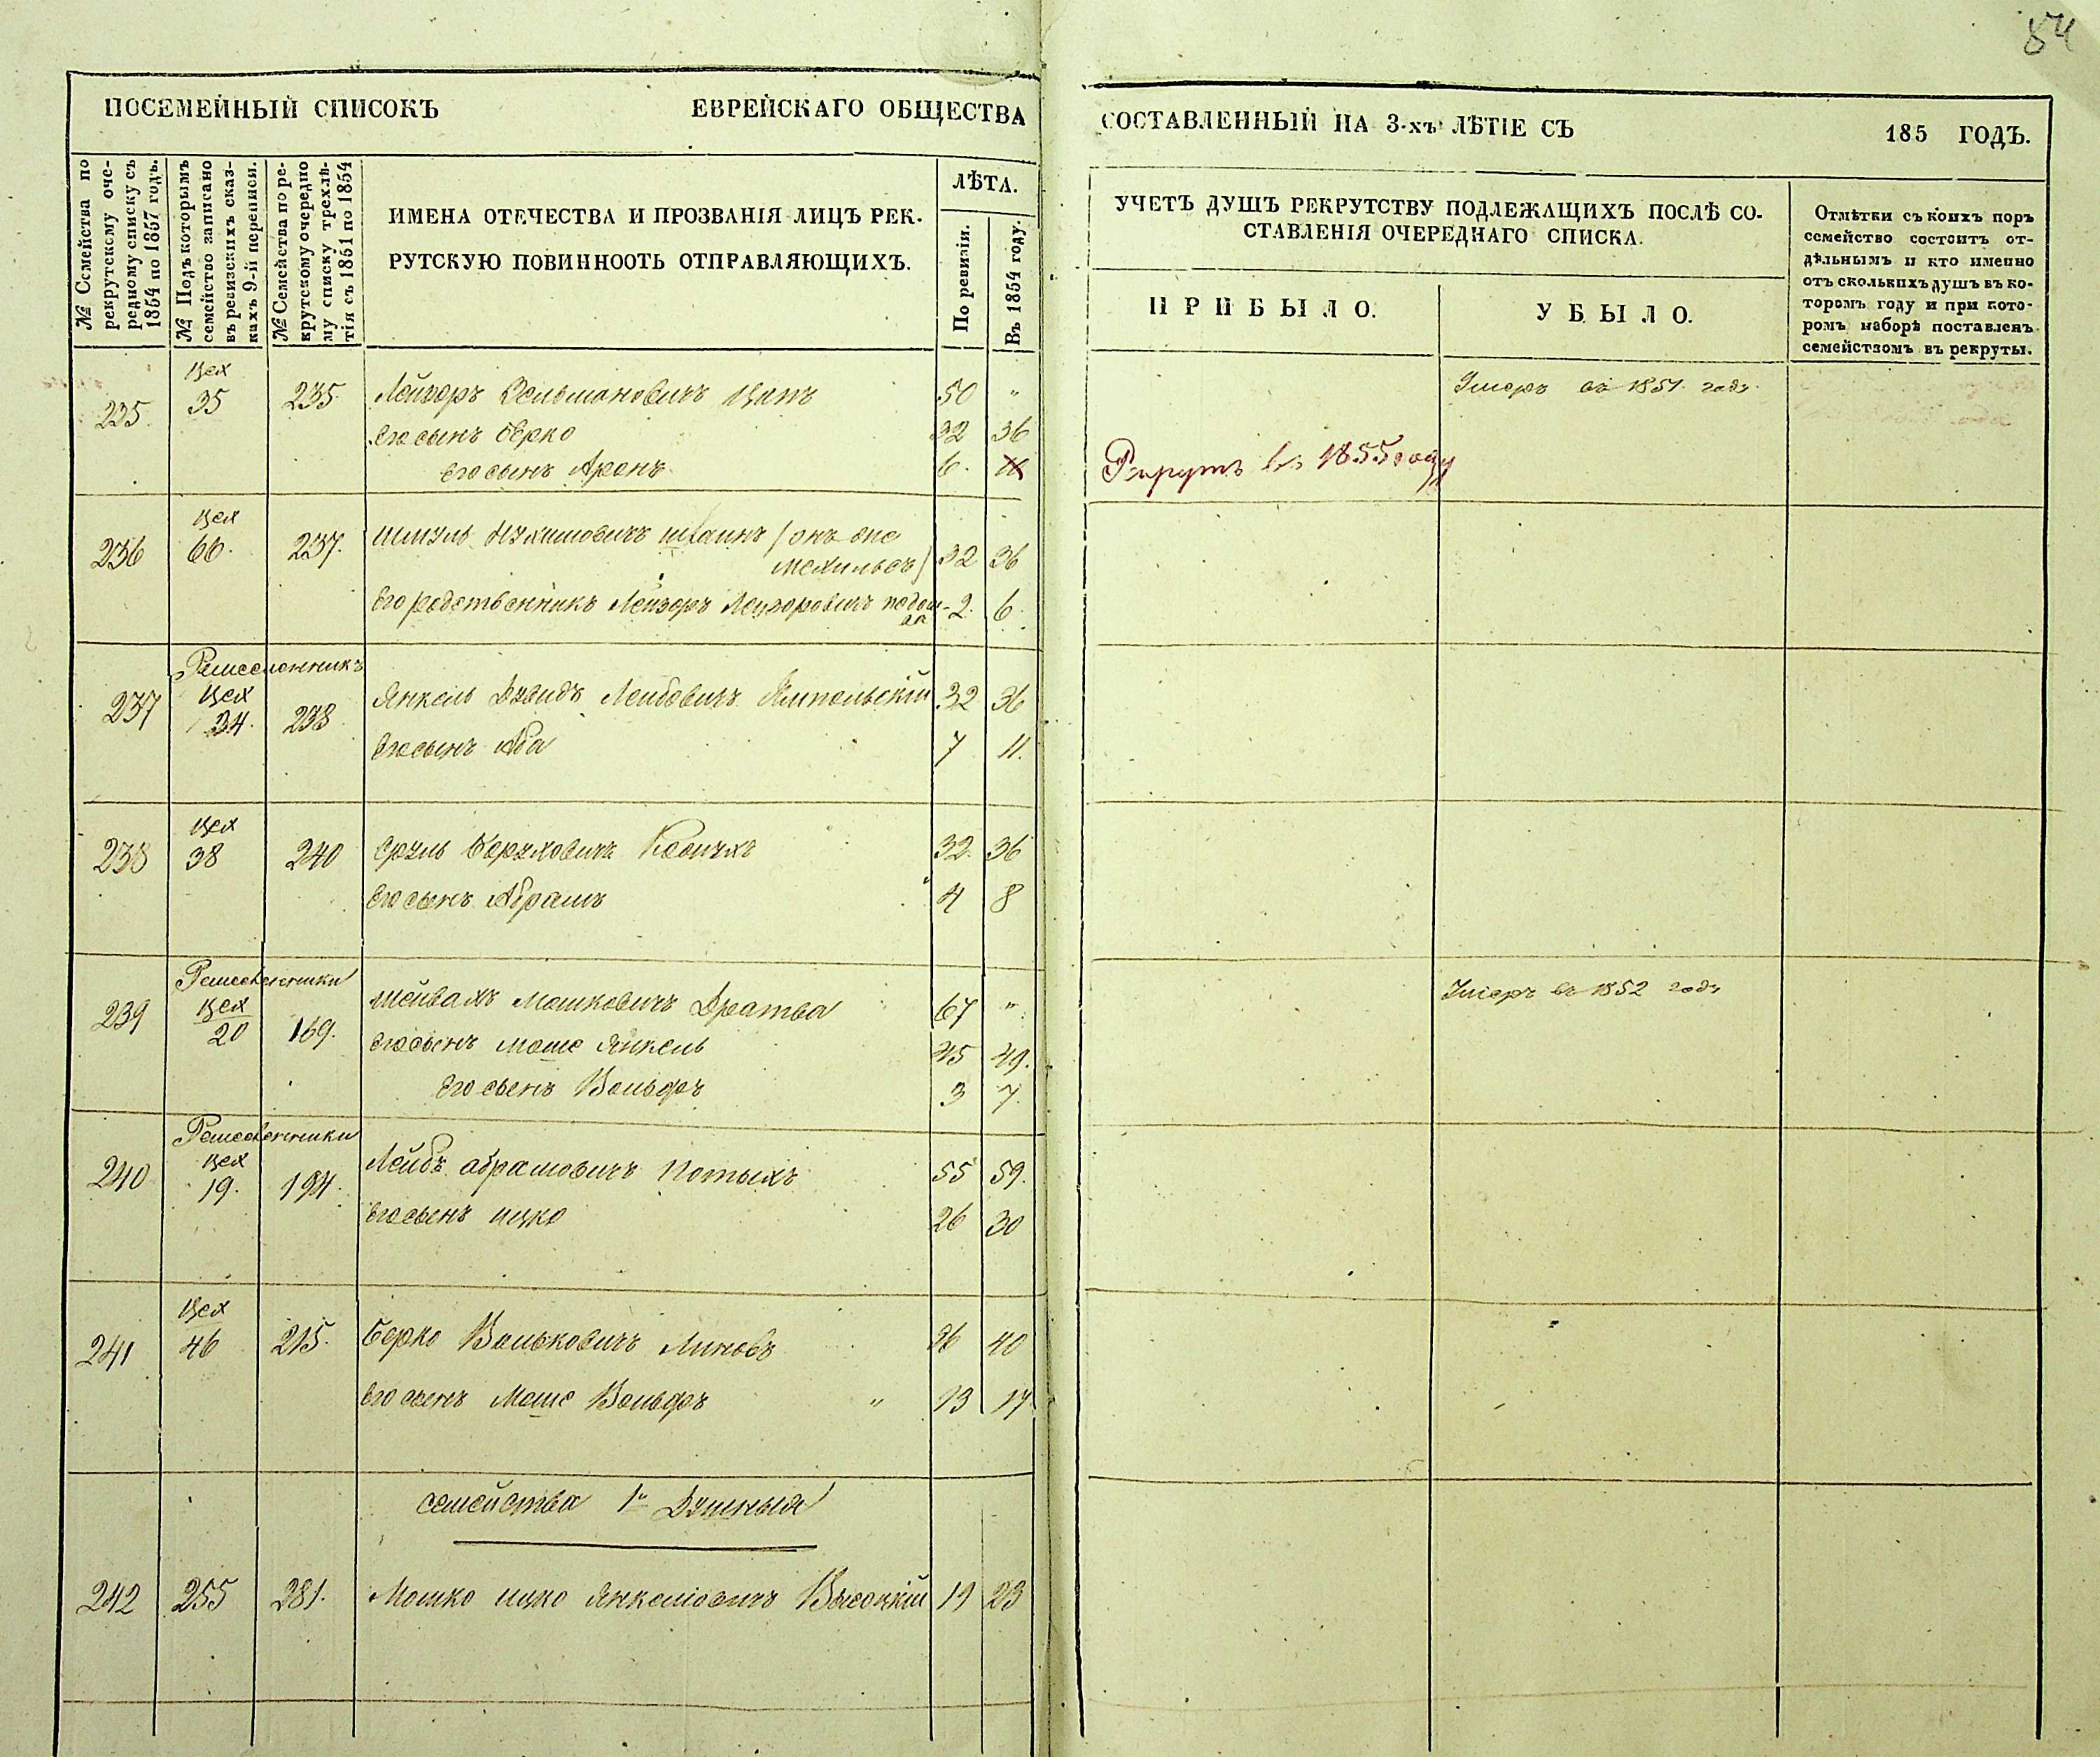 84
ПОСЕМЕЙНЫЙ СПИСОКЪ ЕВРЕЙСКАГО ОБЩЕСТВА
СОСТАВЛЕННЫЙ НА 3-хъ ЛѢТІЕ СЪ 185 ГОДЪ.
№ Семейства по
рекрутскому оче-
редному списку съ
1854 по 1857 годъ.
№ Подъ которымъ
семейство записано
въ ревизскихъ сказ-
кахъ 9-й переписи.
№ Семейства по ре-
крутскому очередно
му списку трехлѣ-
тія съ 1851 по 1854
ИМЕНА ОТЕЧЕСТВА И ПРОЗВАНІЯ ЛИЦЪ РЕК-
РУТСКУЮ ПОВИННООТЬ ОТПРАВЛЯЮЩИХЪ.
ЛѢТА.
По ревизіи.
Въ 1854 году.
УЧЕТЪ ДУШЪ РЕКРУТСТВУ ПОДЛЕЖАЩИХЪ ПОСЛѢ СО-
СТАВЛЕНІЯ ОЧЕРЕДНАГО СПИСКА.
ПРИБЫЛО.
УБЫЛО.
Отмѣтки съ коихъ поръ
семейство состоитъ от-
дѣльнымъ и кто именно
отъ сколькихъ душъ въ ко-
торомъ году и при кото-
ромъ наборѣ поставленъ
семействомъ въ рекруты.
цех
235. 35 235. Лейзоръ Зельмановичъ Цапъ 50 " Умеръ въ 1851 годъ
Его сынъ Берко 32 36
его сынъ Аронъ 6. Рекрутъ въ 1855 году
цех
236 66. 237. Шмуль Нухимовичъ Штаинъ (онъ же
32 36
Его родственникъ Лейзоръ Лейзоровичъ 2. 6.
Ремесленникъ
цех
237 34. 238 Янкель Дувидъ Лейбовичъ Ямпольскій 32 36
Его сынъ Аба 7 11.
цех
238 38 240 Сруль Борухович 32. 36
Его сынъ Абрамъ 4 8
Ремесленники
цех
239 20 169. Шейвахъ Мошковичъ Дратва 67 " Умеръ въ 1852 годъ
Его сынъ Моше Янкель 45 49.
Его сынъ Вольфъ 3 7.
Ремесленники
цех
240 19. 194. Лейбъ Абрамовичъ Потыхъ 55 59.
Его сынъ Ицко 26 30
цех
241 46 215. Берко Вольковичъ Линовъ 36 40
Его сынъ Моше Вольфъ " 13 17
семейства 1о Душныя
242 255 281. Мошко Ицко Янкеліовичъ Высоцкій 19 23